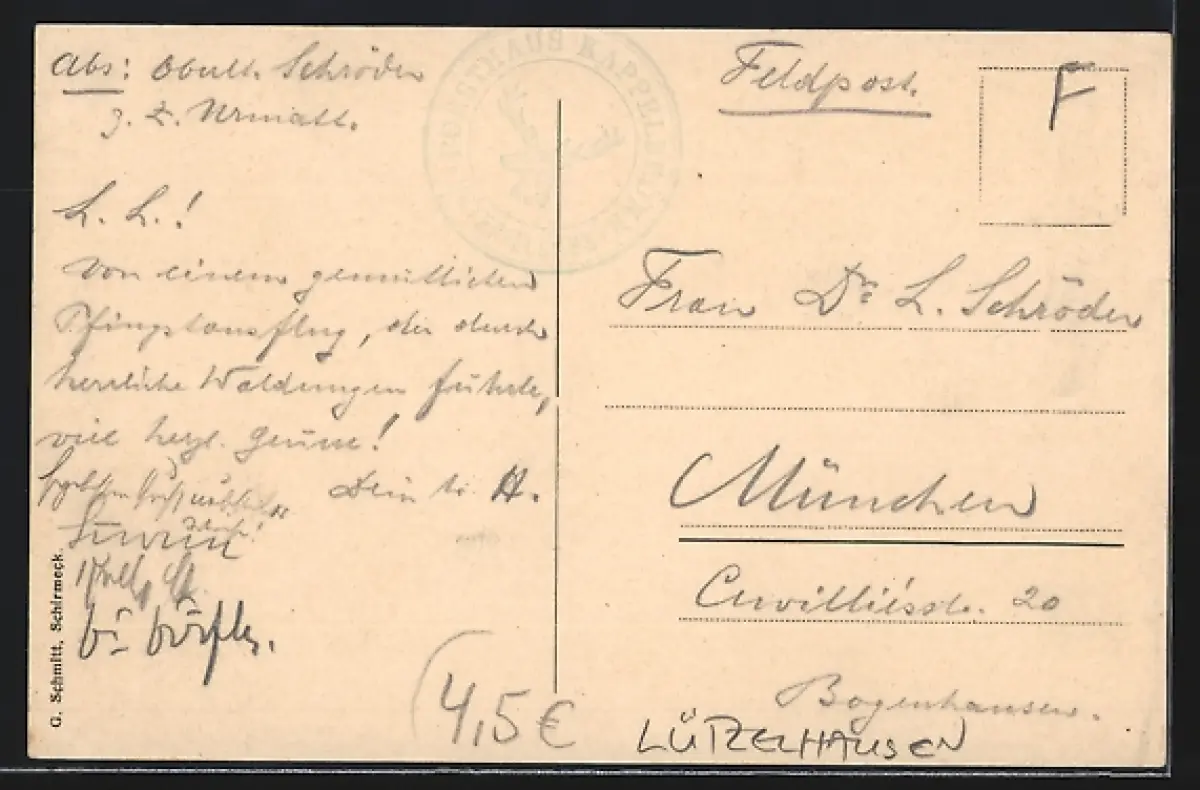 Abs: Oblt. Schröder
z. Z. Urmatt.
L. L.!
Von einem gemütlichen
Pfingstausflug, der durch
herrliche Waldungen führte,
viel herzl. Grüsse!
Dein tr. H.
G. Schmitt, Schirmeck.
FORSTHAUS KAPPELBRONN
Feldpost.
F
Frau Dr. L. Schröder
München
Cuvilliésstr. 20
Bogenhausen.
4,5 €
LÜTZELHAUSEN